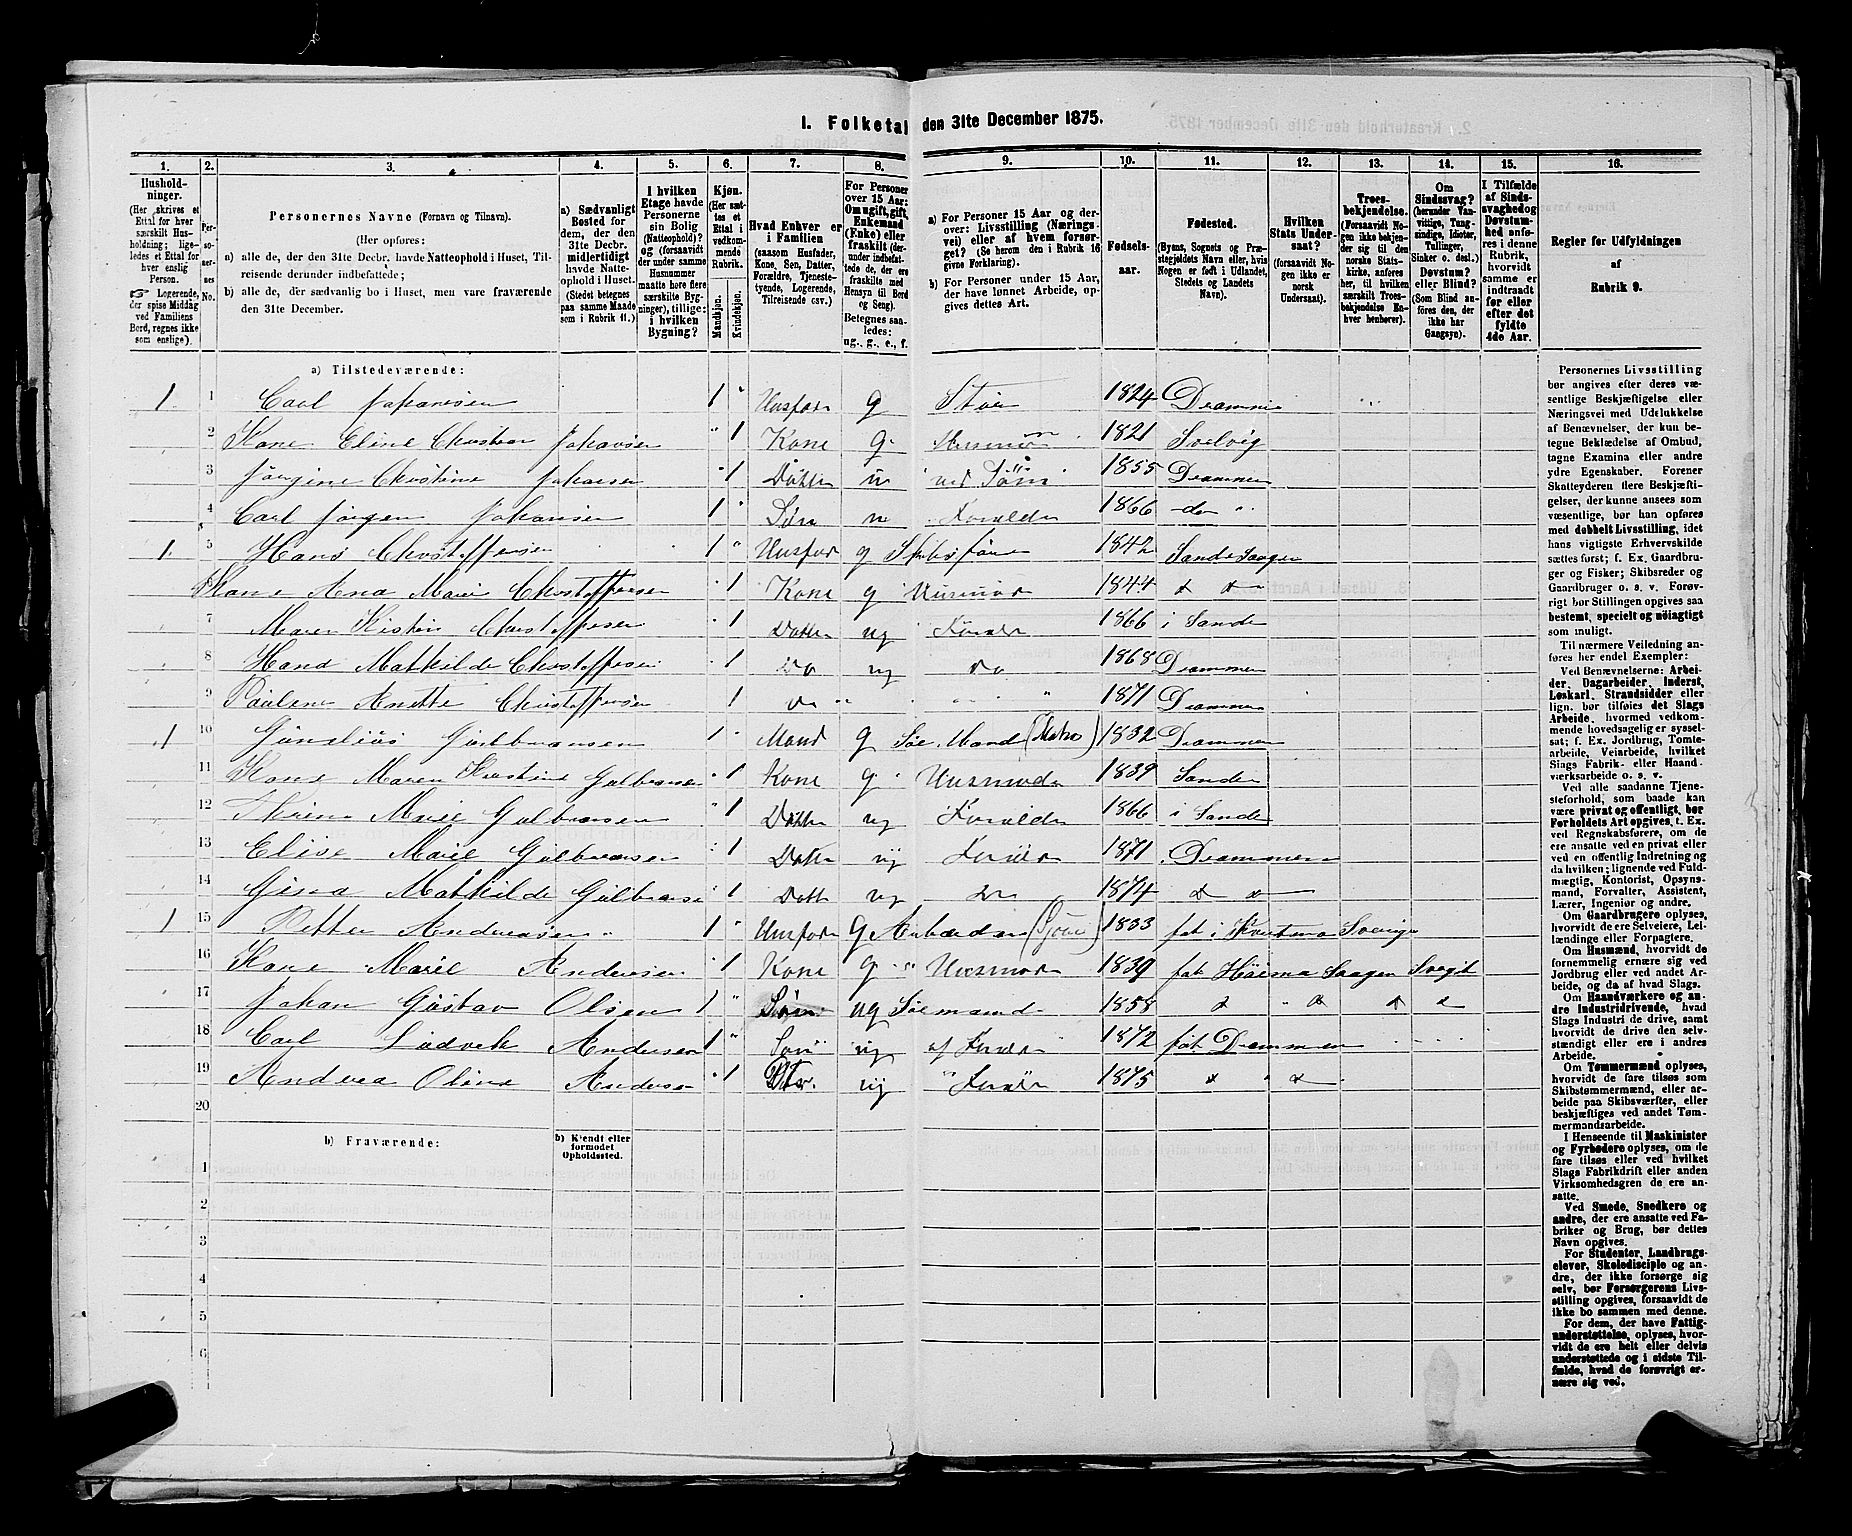 I. Folketal den 31te December 1875.
1. 2. 3. 4. 5. 6. 7. 8. 9. 10. 11. 12. 13. 14. 15. 16.
Husholdninger.
(Her skrives et Ettal for hver særskilt Husholdning; ligeledes et Ettal for hver enslig Person.
Logerende, der spise Middag ved Familiens Bord, regnes ikke som enslige).
Personernes No.
Personernes Navne (Fornavn og Tilnavn).
(Her opføres:
a) alle de, der den 31te Decbr. havde Natteophold i Huset, Tilreisende derunder indbefattede;
b) alle de, der sædvanlig bo i Huset, men vare fraværende den 31te December.
a) Sædvanligt Bosted for dem, der den 31te Decbr. midlertidigt havde Natteophold i Huset.
(Stedet betegnes paa samme Maade som i Rubrik 11.)
I hvilken Etage havde Personerne sin Bolig (Natteophold)? og (forsaavidt der under samme Husnummer maatte høre flere særskilte Bygninger), tillige: i hvilken Bygning?
Kjøn. (Her sættes et Ettal i vedkommende Rubrik.
Mandkjøn. Kvindekjøn.
Hvad Enhver er i Familien
(saasom Husfader, Kone, Søn, Datter, Forældre, Tjenestetyende, Logerende, Tilreisende osv.)
For Personer over 15 Aar: Om ugift, gift, Enkemand (Enke) eller fraskilt (derunder indbefattede de, der ere fraskilte med Hensyn til Bord og Seng).
Betegnes saaledes:
ug., g., e., f.
a) For Personer 15 Aar og derover: Livsstilling (Næringsvei) eller af hvem forsørget? (Se herom den i Rubrik 16 givne Forklaring).
b) For Personer under 15 Aar, der have lønnet Arbeide, opgives dettes Art.
Fødselsaar.
Fødested.
(Byens, Sognets og Præstegjeldets Navn eller, hvis Nogen er født i Udlandet, Stedets og Landets Navn).
Hvilken Stats Undersaat?
(forsaavidt Nogen ikke er norsk Undersaat).
Troesbekjendelse.
(Forsaavidt Nogen ikke bekjender sig til den norske Statskirke, anføres her, til hvilken særskilt Troesbekjendelse Enhver henhører).
Om Sindssvag?
(herunder Vanvittige, Tungsindige, Idioter, Tullinger, Sinker o. desl.)
Døvstum? eller Blind?
(Som Blind anføres den, der ikke har Gangsyn).
I Tilfælde af Sindssvaghed og Døvstumhed anføres i denne Rubrik, hvorvidt samme er indtraadt før eller efter det fyldte 4de Aar.
Regler for Udfyldningen
af
Rubrik 9.
a) Tilstedeværende:
1 1 Carl Johansen 1 " Husfader g 1824 Drammen
2 Kone Eline Johansen " 1 Kone g Husmor 1821 Svelvig
3 Jørgine Christine Johansen 1 Datter 1855 Drammen
4 Carl Jørgen Johansen 1 " Søn Forældre 1866 do
1 5 Hans Christoffersen 1 " Husfader g 1842
6 Kone Ana Marie Christoffersen 1 Kone g Husmoder 1844
7 Maren Christoffersen 1 Datter ug Foræld 1866 i Sande
8 Mathilde Christoffersen 1 Do ug Do 1868 Drammen
9 Anette Christoffersen 1 1871 Drammen
1 10 Gulbransen 1 " Mand g Søe Mand (Matros) 1832 Drammen
11 Kone Maren Kristine Gulbransen 1 Kone g Husmoder 1839 Sande
12 Marie Gulbransen 1 Datter ug Forældre 1866 i Sande
13 Elise Marie Gulbransen 1 Datter ug 1871 Drammen
14 Gina Mathilde Gulbransen 1 Datt ug Do 1874
1 15 Petter Andersen 1 " Husfader g 1833 føt i Sverige
16 Kone Marie Andersen 1 Kone g " Husmoder 1839
17 Johan Gustav Olsen 1 " Søn ug Søemand 1858
18 Carl Ludvik Andersen 1 " Søn ug af 1872 føt Drammen
19 Andrea Oline Andersen 1 ug 1875
20
b) Fraværende:
b) Kjendt eller formodet Opholdssted.
1
2
3
4
5
6
Personernes Livsstilling bør angives efter deres væsentlige Beskjæftigelse eller Næringsvei med Udelukkelse af Benævnelser, der kun betegne Beklædelse af Ombud, tagne Examina eller andre ydre Egenskaber. Forener Skatteyderen flere Beskjæftigelser, der kunne ansees som væsentlige, bør han opføres med dobbelt Livsstilling, idet hans vigtigste Erhvervskilde sættes først; f. Ex. Gaardbruger og Fisker; Skibsreder og Gaardbruger o. s. v. Forøvrigt bør Stillingen opgives saa bestemt, specielt og nøiagtigt som muligt.
Til nærmere Veiledning anføres her endel Exempler:
Ved Benævnelserne: Arbeider, Dagarbeider, Inderst, Løskarl, Strandsidder eller lign. bør tilføies det Slags Arbeide, hvormed vedkommende hovedsagelig er sysselsat; f. Ex. Jordbrug, Tomtearbeide, Veiarbeide, hvilket Slags Fabrik- eller Haandværksarbeide o. s. v.
Ved alle saadanne Tjenesteforhold, som baade kan være privat og offentligt, bør Forholdets Art opgives, f. Ex. ved Regnskabsførere, om de ere ansatte ved en privat eller ved en offentlig Indretning og da hvilken; lignende ved Fuldmægtig, Kontorist, Opsynsmand, Forvalter, Assistent, Lærer, Ingeniør og andre.
Om Gaardbrugere oplyses, hvorvidt de ere Selveiere, Leilændinge eller Forpagtere.
Om Husmænd, hvorvidt de fornemmelig ernære sig ved Jordbrug eller ved andet Arbeide, og da af hvad Slags.
Om Haandværkere og andre Industridrivende, hvad Slags Industri de drive, samt hvorvidt de drive den selvstændigt eller ere i andres Arbeide.
Om Tømmermænd oplyses, hvorvidt de fare tilsøs som Skibstømmermænd, eller arbeide paa Skibsværfter, eller beskjæftiges ved andet Tømmermandsarbeide.
I Henseende til Maskinister og Fyrbødere oplyses, om de fare tilsøs eller ved hvilket Slags Fabrikdrift eller anden Virksomhedsgren de ere ansatte.
Ved Smede, Snedkere og andre, der ere ansatte ved Fabriker og Brug, bør dettes Navn opgives.
For Studenter, Landbrugselever, Skoledisciple og andre, der ikke forsørge sig selv, bør Forsørgerens Livsstilling opgives, forsaavidt de ikke bo sammen med denne.
For dem, der have Fattigunderstøttelse, oplyses, hvorvidt de ere helt eller delvis understøttede og i sidste Tilfælde, hvad de forøvrigt ernære sig ved.